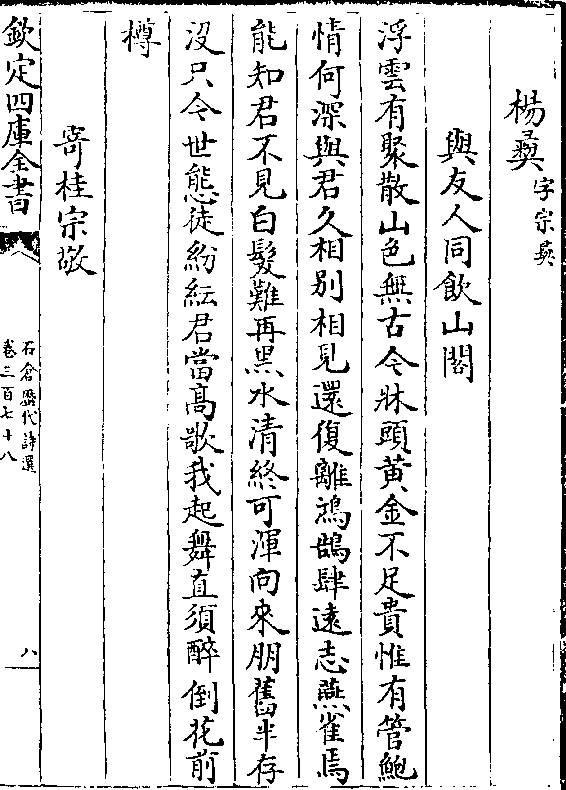 楊彞字宗彞
與友人同飲山閣
浮雲有聚散山色無古今牀頭黄金不足貴惟有管鮑
情何深與君久相别相見還復離鴻鵠肆逺志燕雀焉
能知君不見白髮難再黒水清終可渾向來朋舊半存
沒只今世態徒紛紜君當髙歌我起舞直須醉倒花前
樽
寄桂宗敬
欽定四庫全書
石倉歴代詩選
卷三百七十八
八